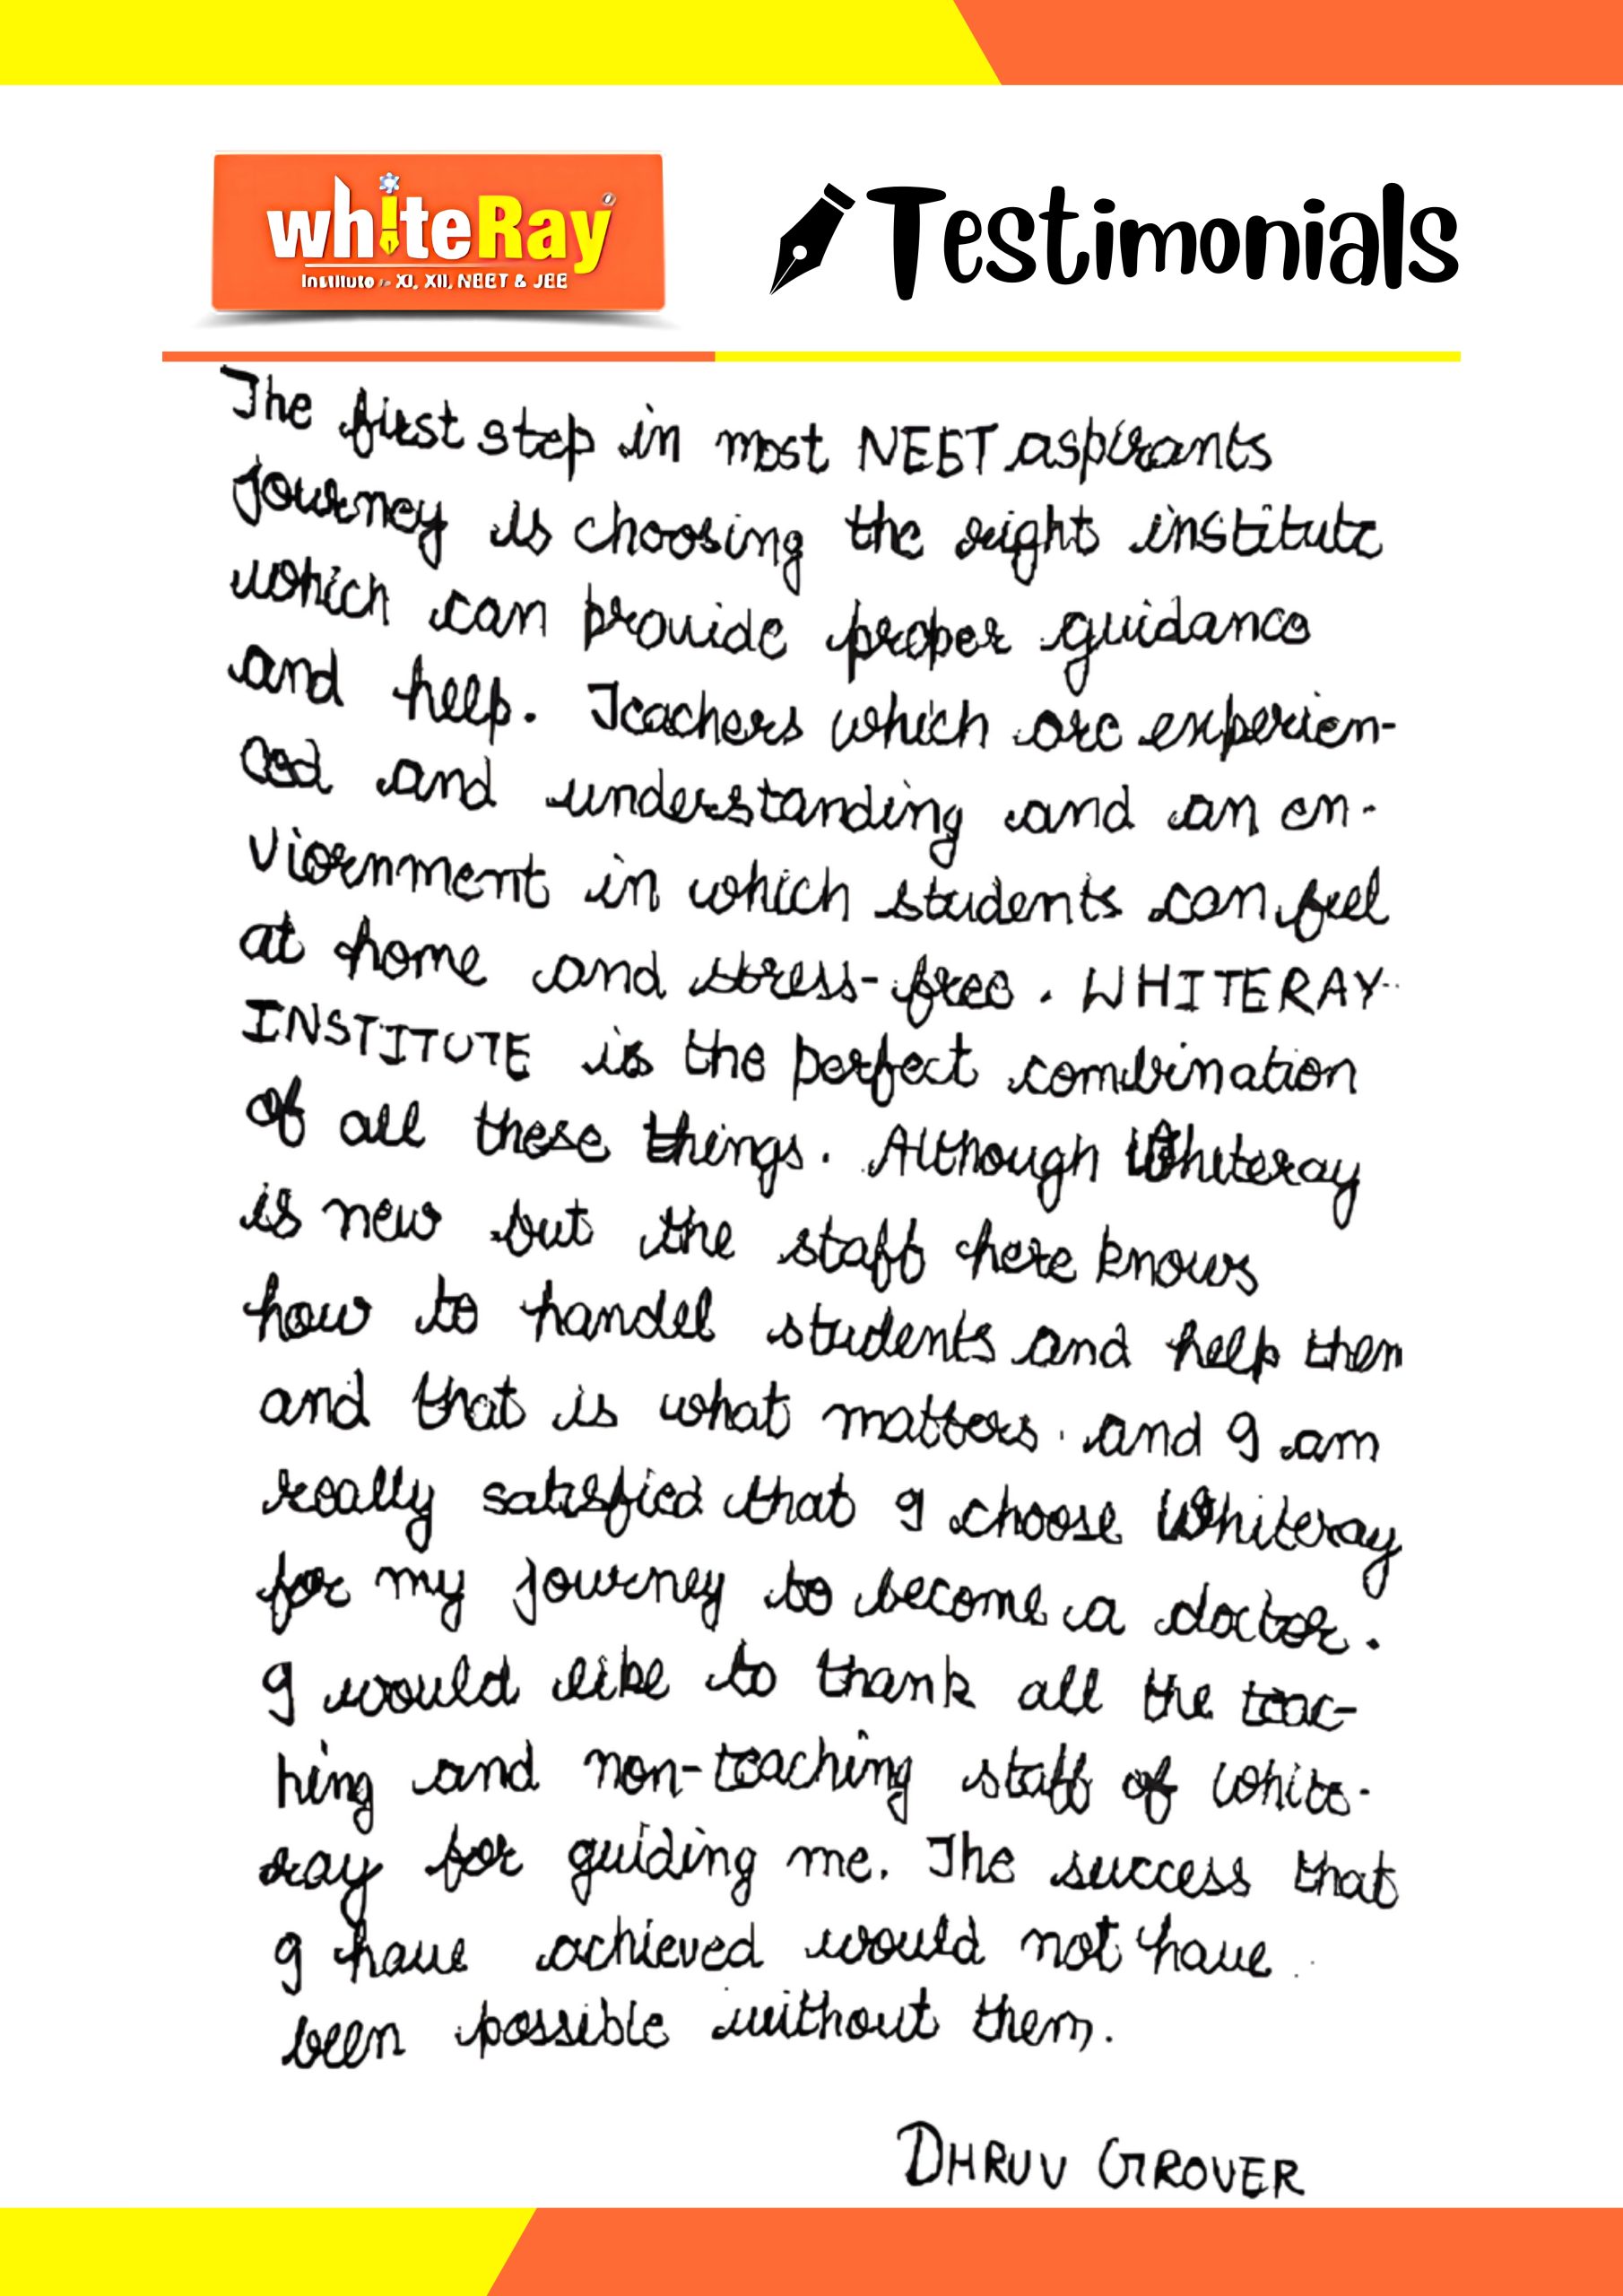 whiteRay
Institute - XI, XII, NEET & JEE
Testimonials
The first step in most NEET aspirants
journey is choosing the right institute
which can provide proper guidance
and help. Teachers which are experien-
ced and understanding and an en-
viornment in which students can feel
at home and stress-free. WHITERAY
INSTITUTE is the perfect combination
of all these things. Although Whiteray
is new but the staff here knows
how to handel students and help them
and that is what matters. and I am
really satisfied that I choose Whiteray
for my journey to become a doctor.
I would like to thank all the teac-
hing and non-teaching staff of white-
ray for guiding me. The success that
I have achieved would not have
been possible without them.
DHRUV GROVER